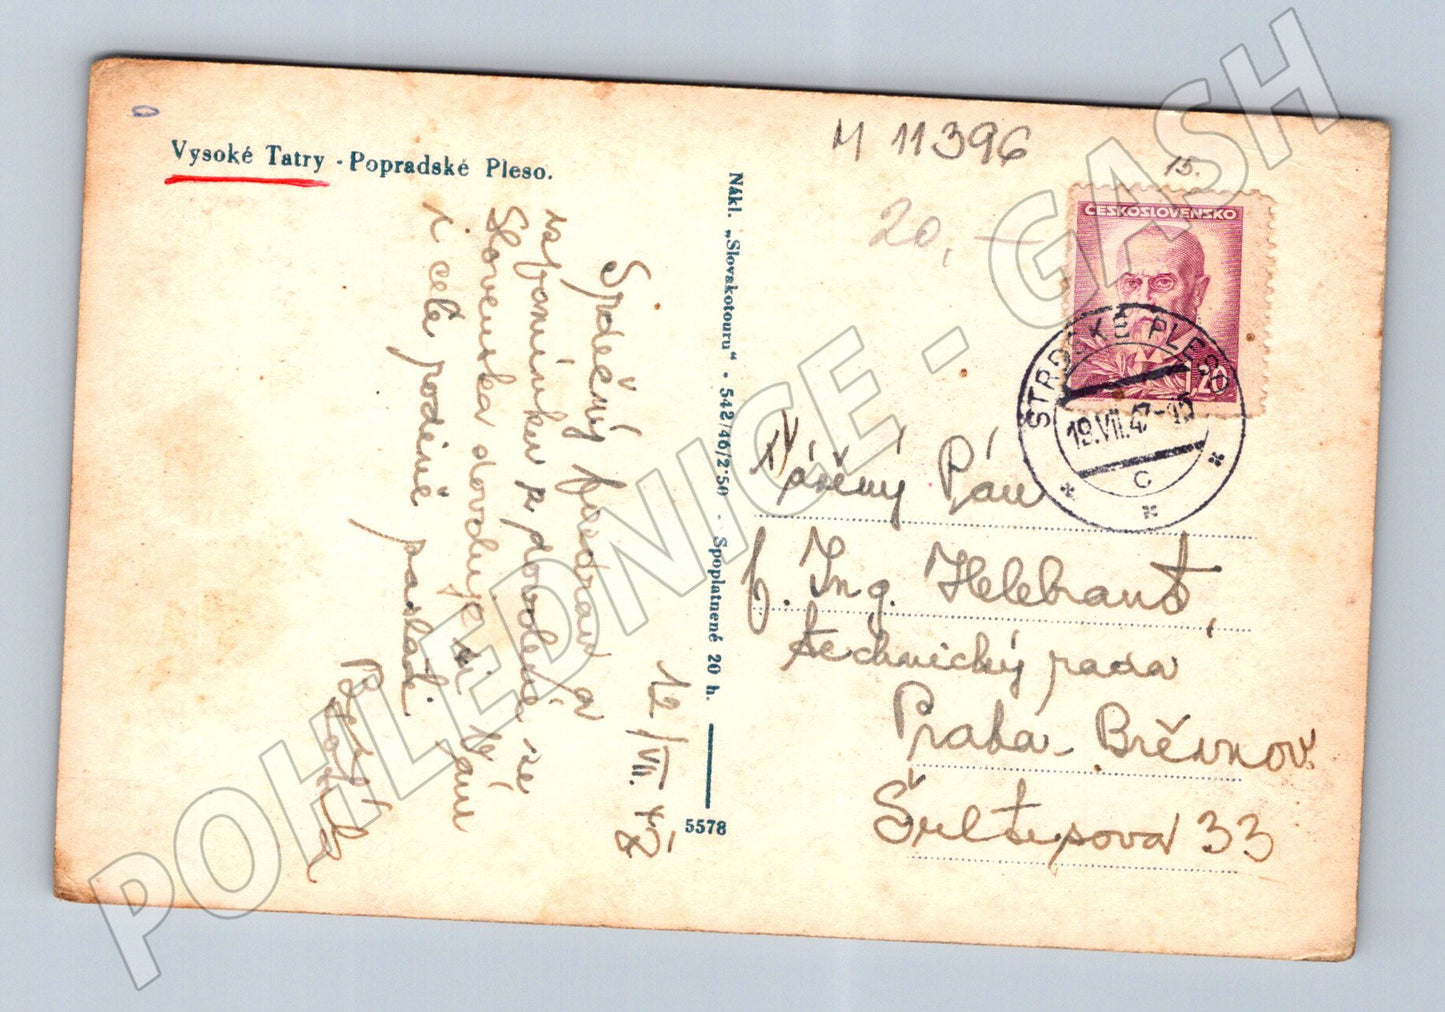 Vysoké Tatry - Popradské Pleso.
M 11396
15.
20,—
ČESKOSLOVENSKO
1,20
ŠTRBSKÉ PLESO
19.VII.47
C
Nákl. „Slovakotouru“ - 542/46/2·50 - Spoplatnené 20 h.
5578
12/VII. 47
Srdečný pozdrav a
vzpomínku z dovolené se
Slovenska dovoluje si Vám
i celé rodině zaslati
Vážený Pán
p. Ing. Helebrant,
technický rada
Praha - Břevnov.
Šultysova 33
POHLEDNICE - GASH